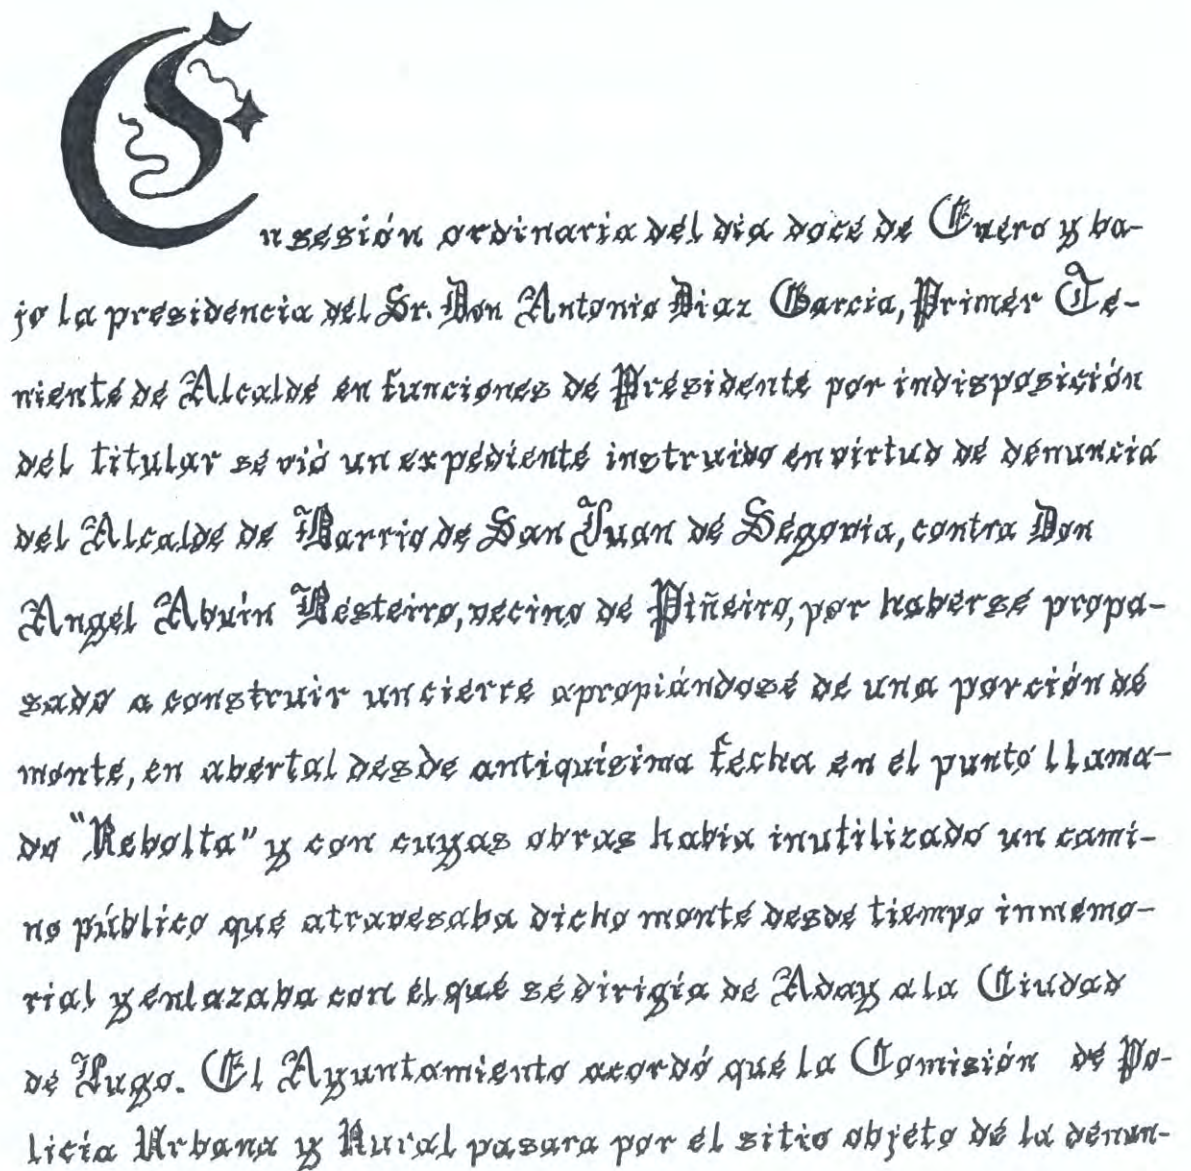 En sesión ordinaria del dia doce de Enero y ba-
jo la presidencia del Sr. Don Antonio Diaz Garcia, Primer Te-
niente de Alcalde en funciones de Presidente por indisposición
del titular se vió un expediente instruido en virtud de denuncia
del Alcalde de Barrio de San Juan de Segovia, contra Don
Angel Abuín Resteiro, vecino de Piñeiro, por haberse propa-
sado a construir un cierre apropiándose de una porción de
monte, en abertal desde antiquísima fecha en el punto llama-
do "Rebolta" y con cuyas obras habia inutilizado un cami-
no público que atravesaba dicho monte desde tiempo inmemo-
rial y enlazaba con el que se dirigía de Aday a la Ciudad
de Lugo. El Ayuntamiento acordó que la Comisión de Po-
licía Urbana y Rural pasara por el sitio objeto de la denun-